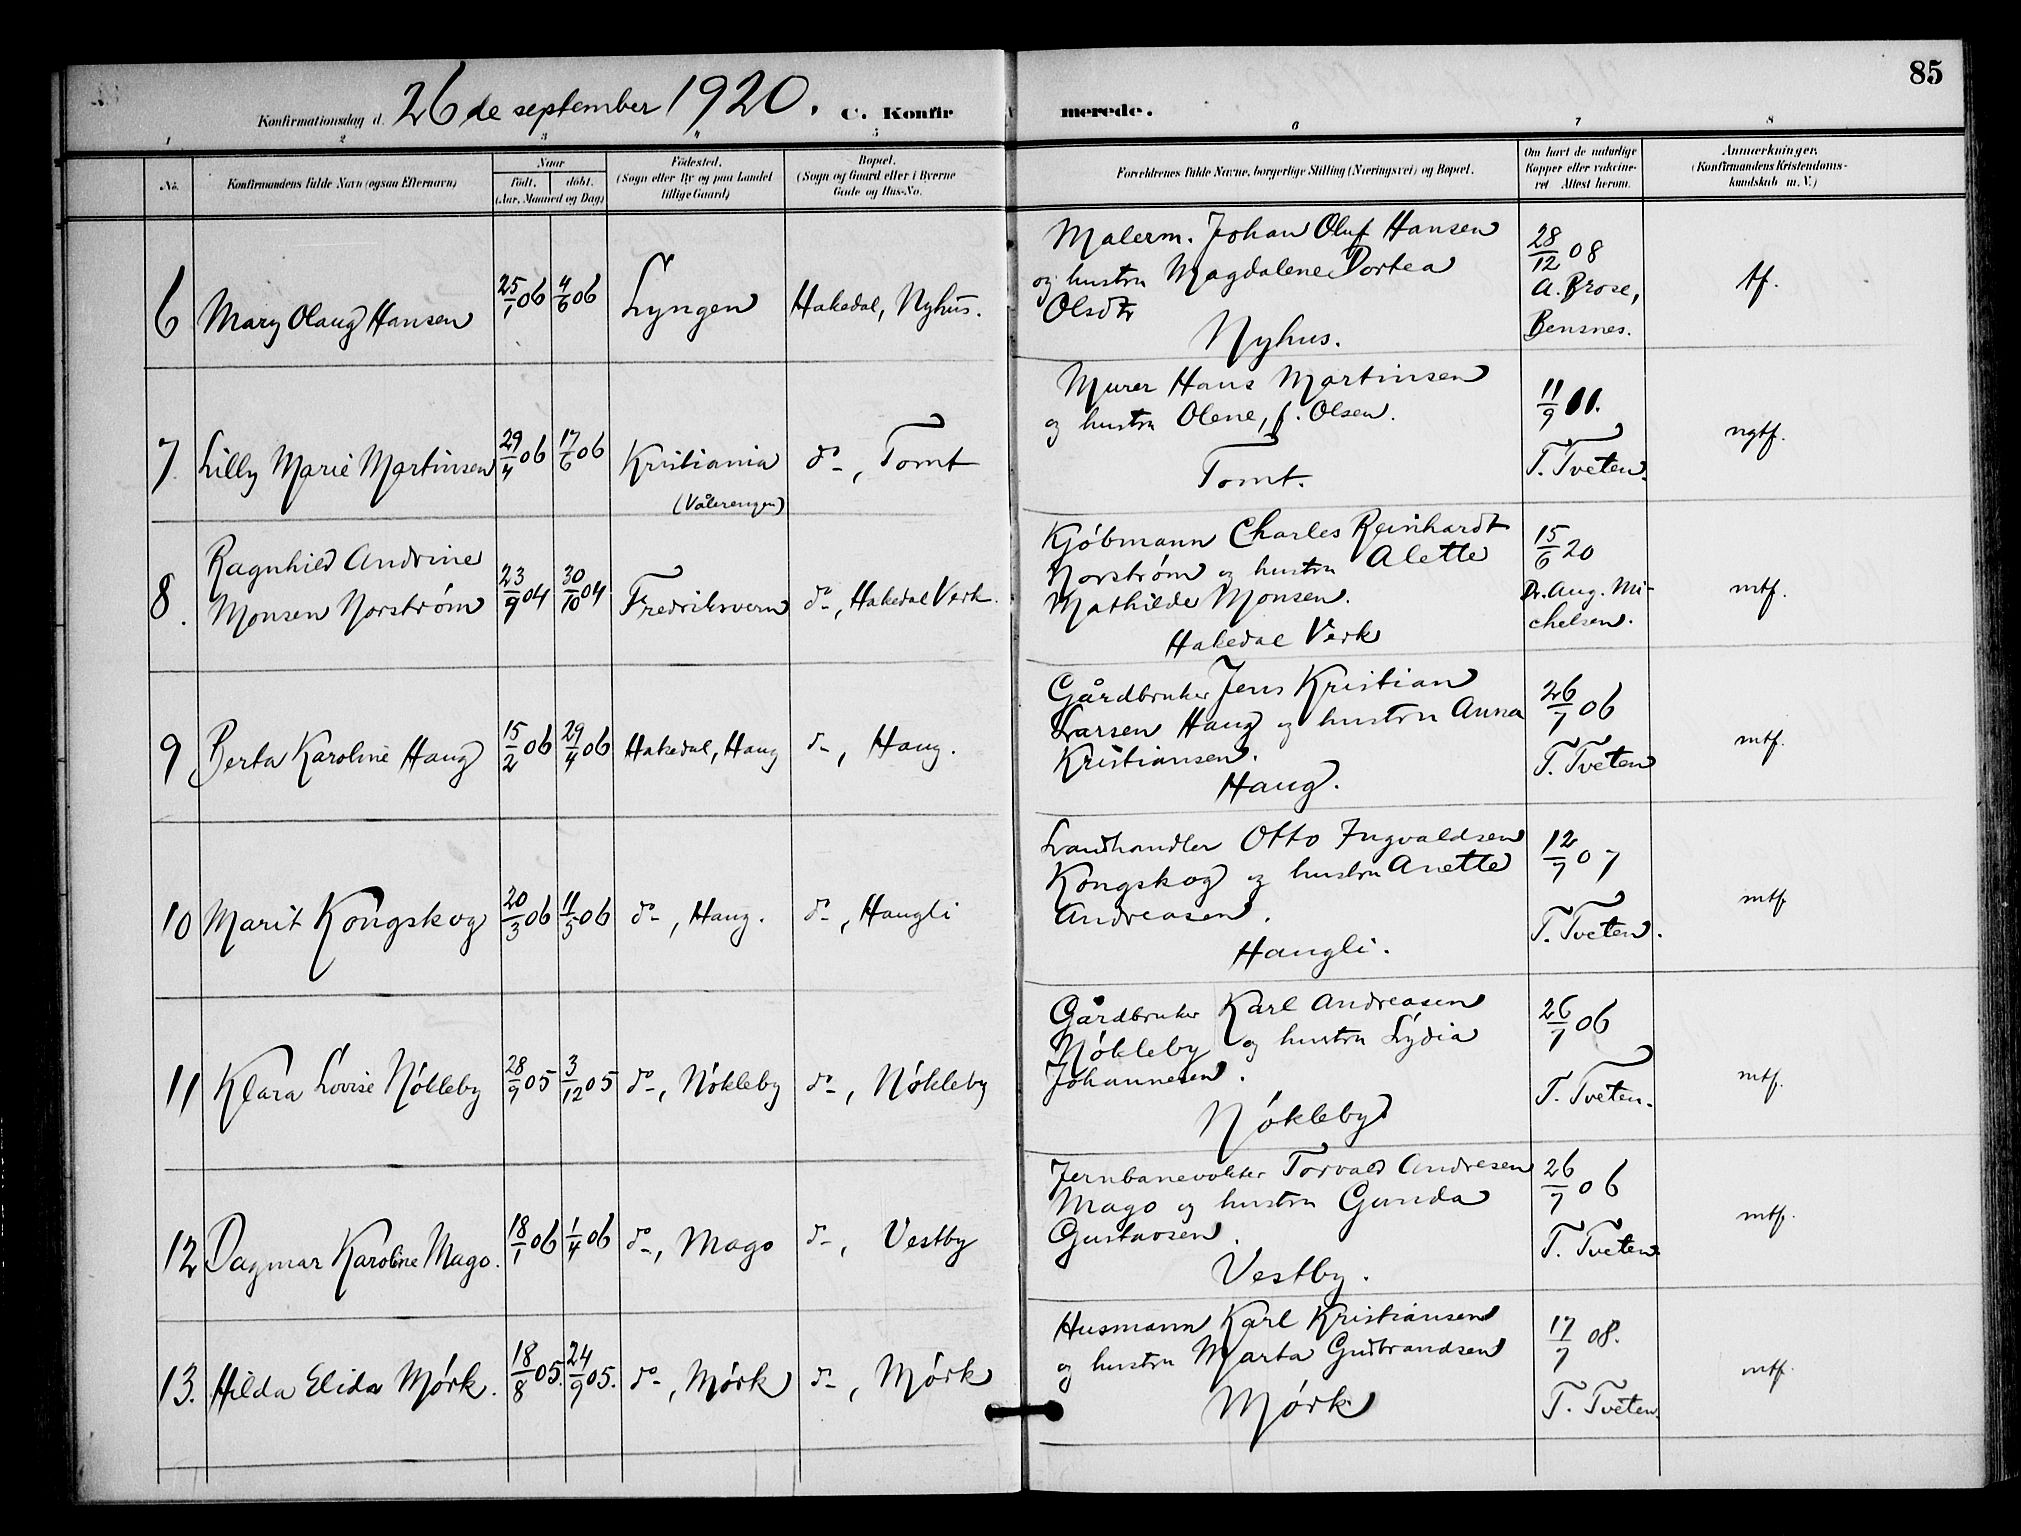 85
Konfirmationsdag d. 26 de september 1920. C. Konfir merede.
1 2 3 4 5 6 7 8
No. Konfirmandens fulde Navn (ogsaa Efternavn) Naar Födt. döbt. (Aar, Maaned og Dag) Födested. (Sogn eller By og paa Landet tillige Gaard) Bopæl. (Sogn og Gaard eller i Byerne Gade og Hus-No. Forældrenes fulde Navne, borgerlige Stilling (Næringsvei) og Bopæl. Om havt de naturlige Kopper eller vakcineret Attest herom. Anmærkninger. (Konfirmandens Kristendomskundskab m. V.)
6 Mary Olaug Hansen 25/1 06 4/6 06 Lyngen Hakedal, Nyhus.
Malerm. Johan Oluf Hansen
og hustru Magdalene Dortea
Olsdtr
Nyhus.
28/12 08
A. Brose,
Bensnes.
tf.
7. Lilly Marie Martinsen 29/4 06 17/6 06 Kristiania
(Vålerengen)
do -, Tomt
Murer Hans Martinsen
og hustru Olene, f. Olsen.
Tomt.
11/9 11.
T. Tveten.
ngtf.
8. Ragnhild Andrine
Monsen Norström 23/9 04 30/10 04 Fredriksvern do -, Hakedal Verk.
Kjöbmann Charles Reinhardt
Norström og hustru Alette
Mathilde Monsen.
Hakedal Verk
15/6 20
Dr. Aug. Mi-
chelsen.
mtf.
9 Berta Karoline Haug 15/2 06 29/4 06 Hakedal, Haug do -, Haug.
Gårdbruker Jens Kristian
Larsen Haug og hustru Anna
Kristiansen.
Haug.
26/7 06
T. Tveten
mtf.
10 Marit Kongskog 20/3 06 11/5 06 do -, Haug. do -, Haugli
Landhandler Otto Ingvaldsen
Kongskog og hustru Anette
Andreasen.
Haugli.
12/7 07
T. Tveten.
mtf.
11 Klara Lovise Nökleby 28/9 05 3/12 05 do -, Nökleby do -, Nökleby
Gårdbruker Karl Andreasen
Nökleby og hustru Lydia
Johannesen.
Nökleby
26/7 06
T. Tveten.
mtf.
12 Dagmar Karoline Mago. 18/1 06 1/4 06 do -, Mago do -, Vestby
Jernbanevokter Torvald Andresen
Mago og hustru Gunda
Gustavsen.
Vestby.
26/7 06
T. Tveten.
mtf.
13. Hilda Elida Mörk. 18/8 05. 24/9 05. do -, Mörk do -, Mörk
Husmann Karl Kristiansen
og hustru Marta Gudbrandsen
Mörk
17/7 08.
T. Tveten.
mtf.